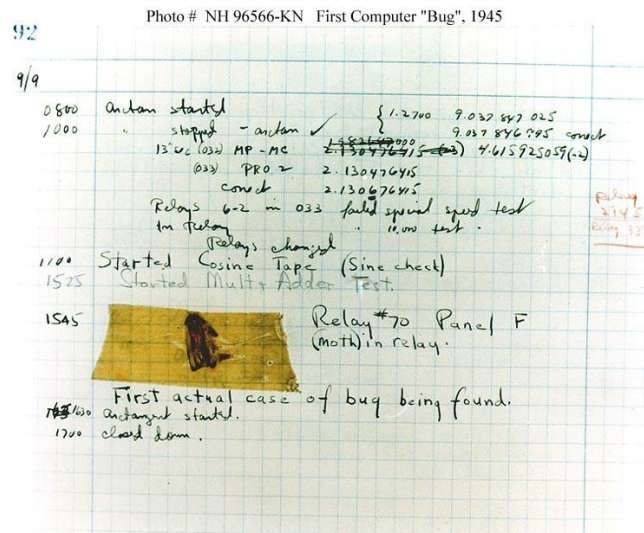 Photo # NH 96566-KN First Computer "Bug", 1945
92
9/9
0800 arctan started
1000 " stopped - arctan ✓
{ 1.2700 9.037 847 025
9.037 846 795 conect
13"uc (032) MP - MC 2.130476415 (-3) 4.615925059(-2)
(033) PRO 2 2.130476415
conect 2.130676415
Relays 6-2 in 033 failed special speed test
In Relay " 10,000 test.
Relays changed
1100 Started Cosine Tape (Sine check)
1525 Started Mult + Adder Test.
1545 Relay #70 Panel F
(moth) in relay.
First actual case of bug being found.
1630 arctangent started.
1700 closed down.
Relay